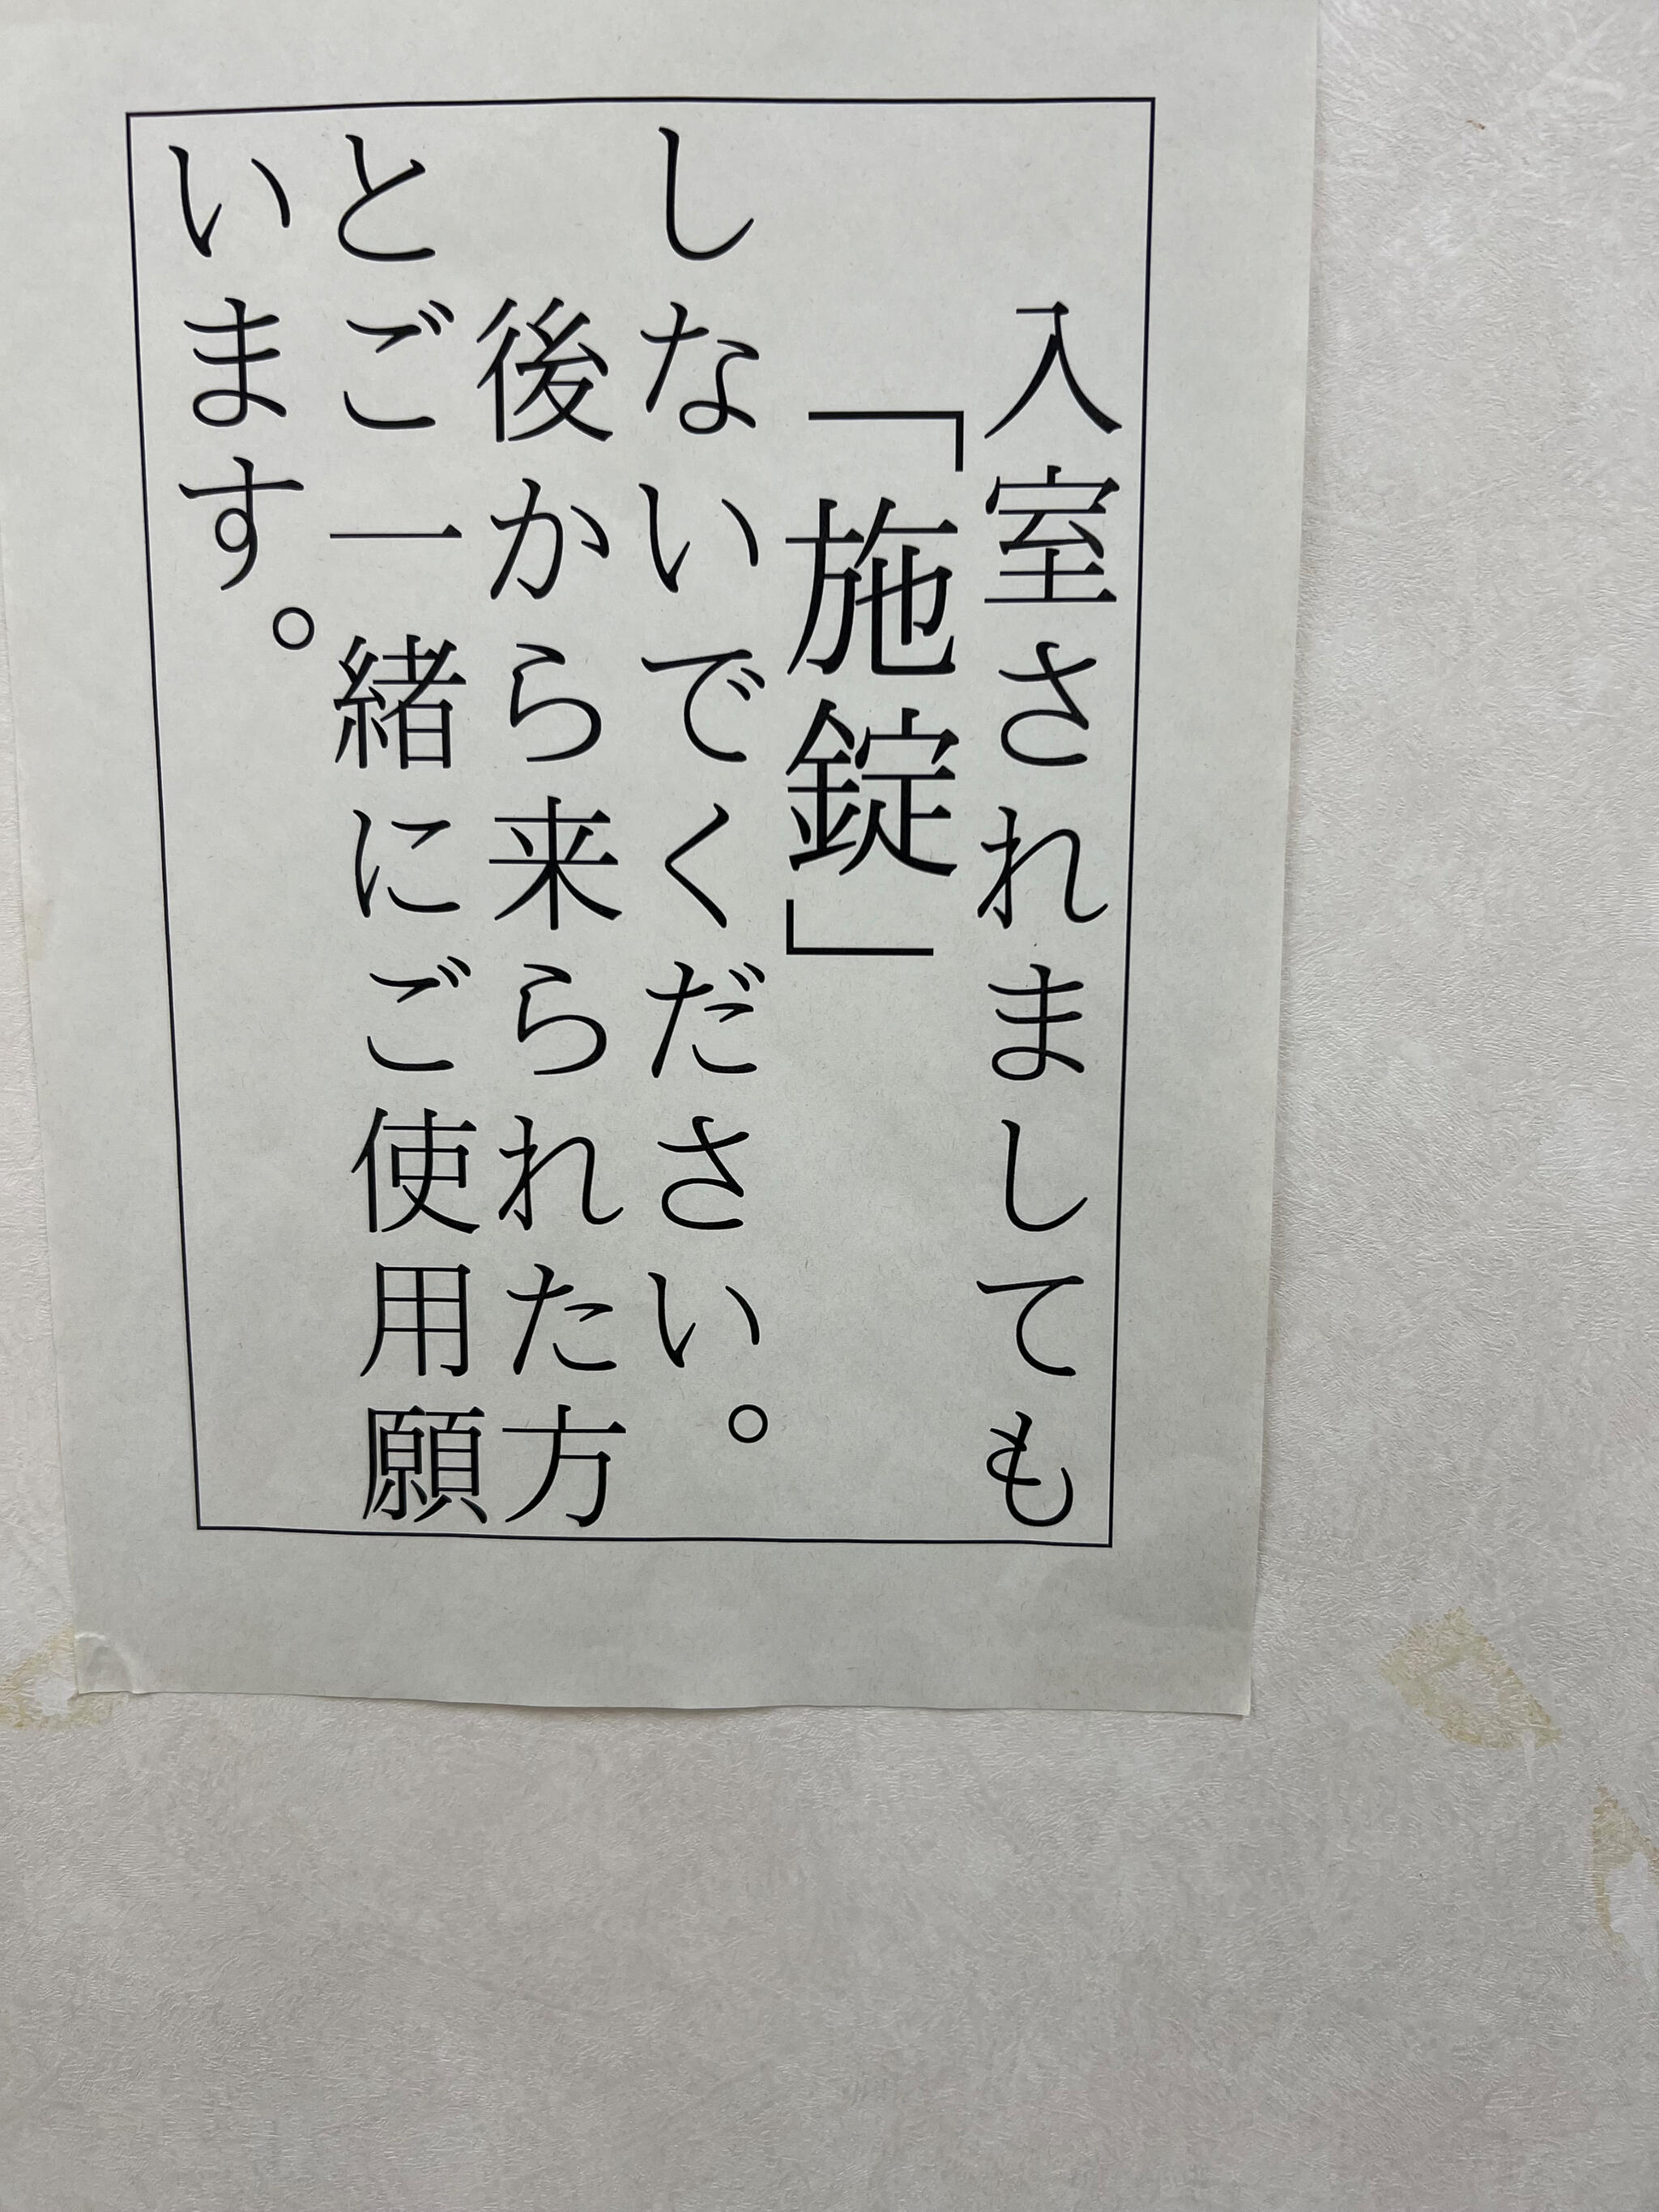 入室されましても
「施錠」
しないでください。
後から来られた方
とご一緒にご使用願
います。